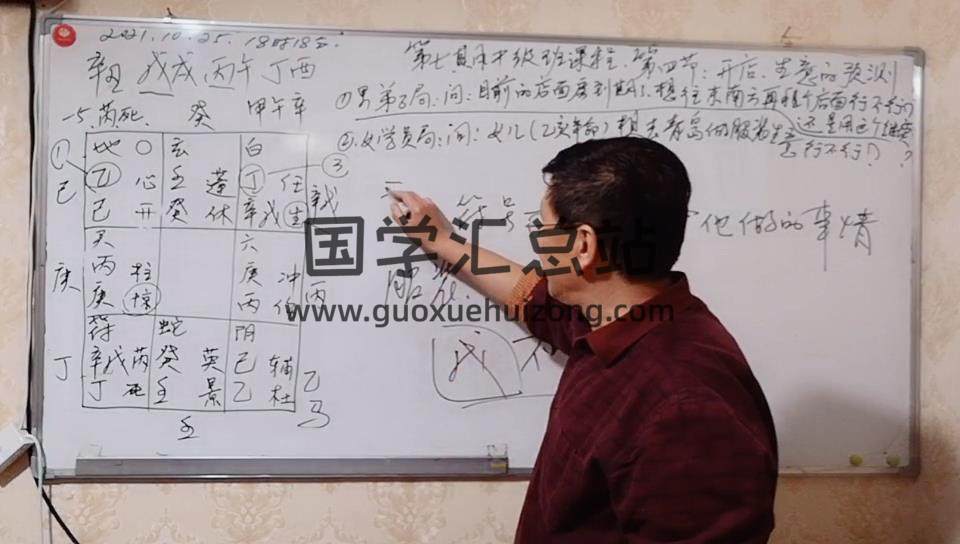 2021.10.25. 18时18分.
辛丑 戊戌 丙午 丁酉
第七期中级班课程. 第四节: 开店、生意的预测
①男弟子局: 问: 目前的店面房到期了, 想往东南方再租个店面行不行?
还是用这个继续?
②女学员局: 问: 女儿(乙亥年命)想去青岛做服装生意行不行?
-5芮死. 癸 甲午辛
① 地 〇 玄 白 ③
乙 心 壬 蓬 丁 任
己 己 开 癸 休 辛戊 生 辛戊
天 六
丙 柱 庚 冲
庚 庚 惊 丙 伤 丙
符 蛇 阴
辛戊 芮 癸 英 己 辅
丁 丁 死 壬 景 乙 杜 乙
壬 马
符号
他做的事情
服装
国学汇总站
www.guoxuehuizong.com